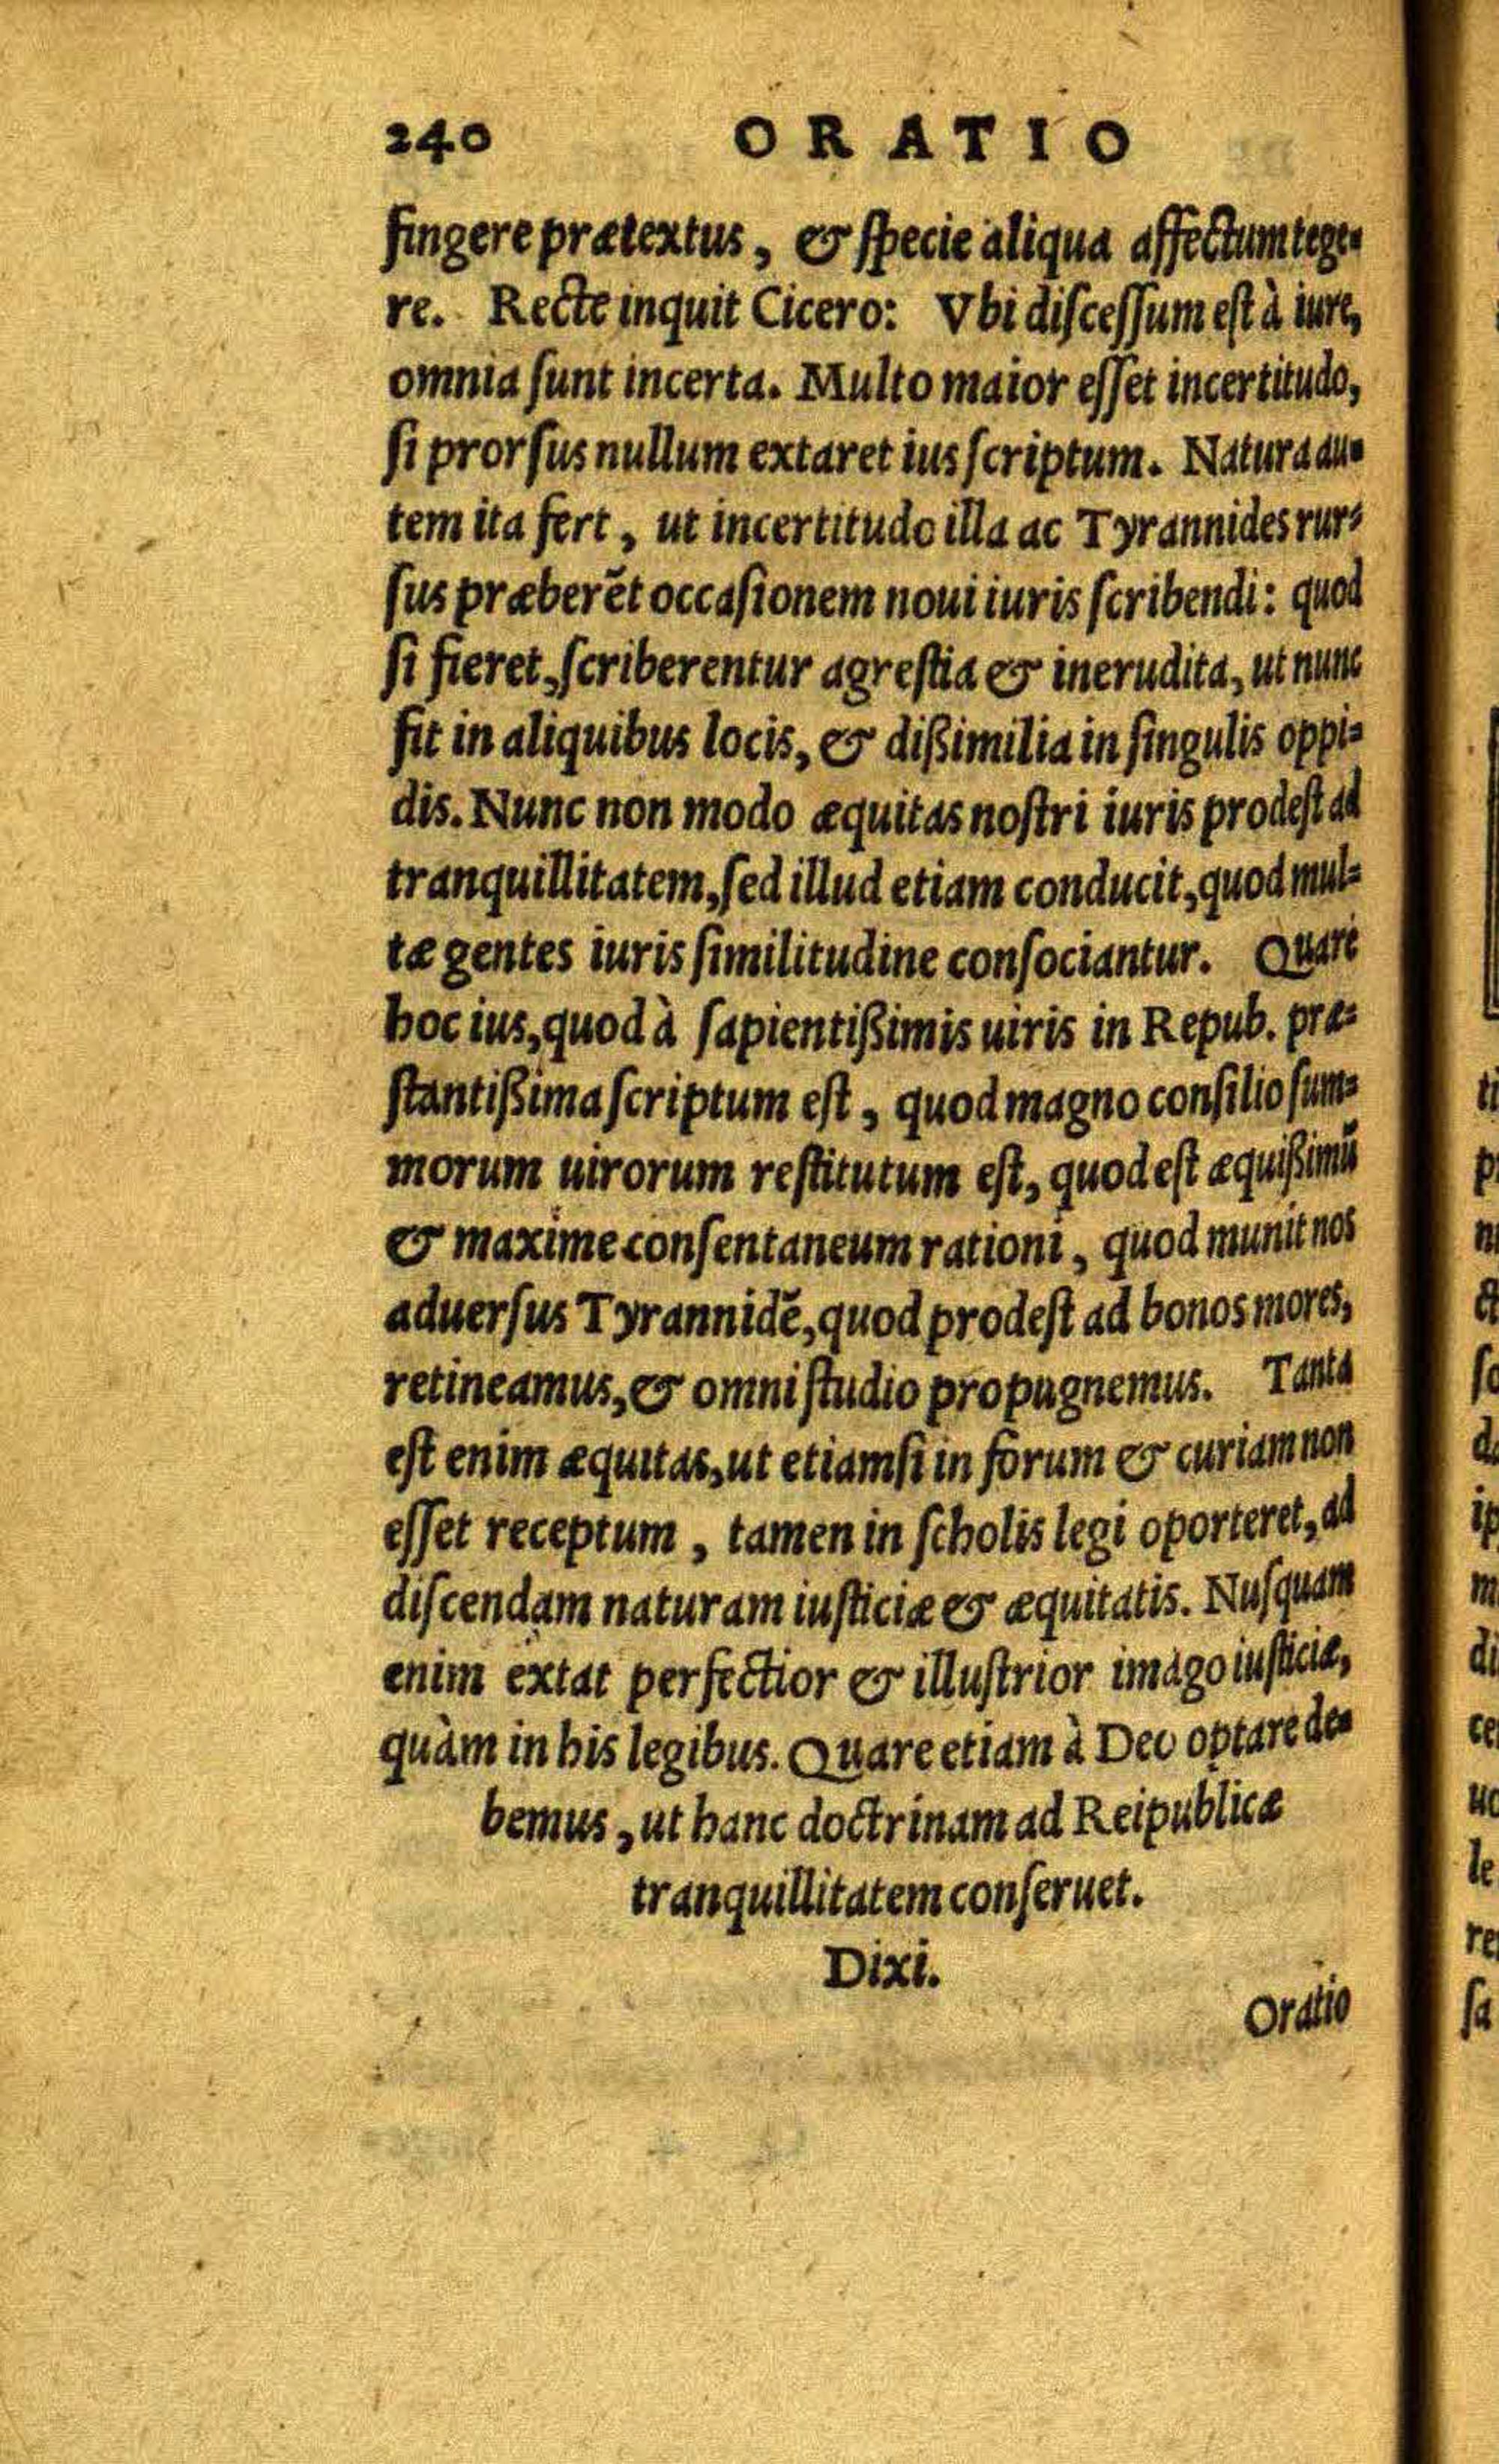 240 ORATIO
fingere prætextus, & ſpecie aliqua affectum tege-
re. Recte inquit Cicero: Vbi diſceſſum eſt à iure,
omnia ſunt incerta. Multo maior eſſet incertitudo,
ſi prorſus nullum extaret ius ſcriptum. Natura au-
tem ita fert, ut incertitudo illa ac Tyrannides rur-
ſus præberẽt occaſionem noui iuris ſcribendi: quod
ſi fieret, ſcriberentur agreſtia & inerudita, ut nunc
fit in aliquibus locis, & dißimilia in ſingulis oppi-
dis. Nunc non modo æquitas noſtri iuris prodeſt ad
tranquillitatem, ſed illud etiam conducit, quod mul-
tæ gentes iuris ſimilitudine conſociantur. Quare
hoc ius, quod à ſapientißimis uiris in Repub. præ-
ſtantißima ſcriptum eſt, quod magno conſilio ſum-
morum uirorum reſtitutum eſt, quod eſt æquißimũ
& maxime conſentaneum rationi, quod munit nos
aduerſus Tyrannidẽ, quod prodeſt ad bonos mores,
retineamus, & omni ſtudio propugnemus. Tanta
eſt enim æquitas, ut etiamſi in forum & curiam non
eſſet receptum, tamen in ſcholis legi oporteret, ad
diſcendam naturam iuſticiæ & æquitatis. Nuſquam
enim extat perfectior & illuſtrior imago iuſticiæ,
quàm in his legibus. Quare etiam à Deo optare de-
bemus, ut hanc doctrinam ad Reipublicæ
tranquillitatem conſeruet.
Dixi.
Oratio